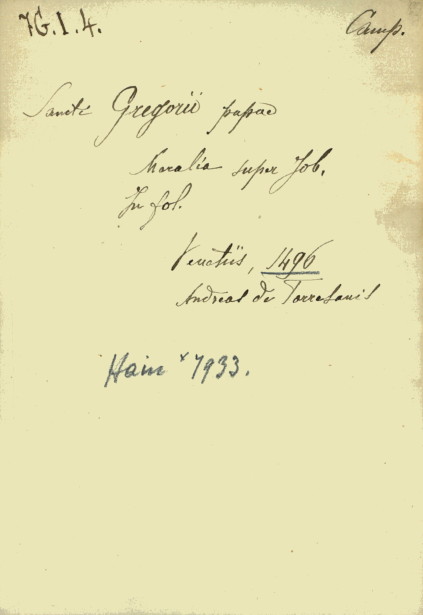 7G.I.4.
Camp.
Sancti Gregorii papae
Moralia super Job.
In fol.
Venetiis, 1496
Andreas de Torresanis
Hain x 7933.